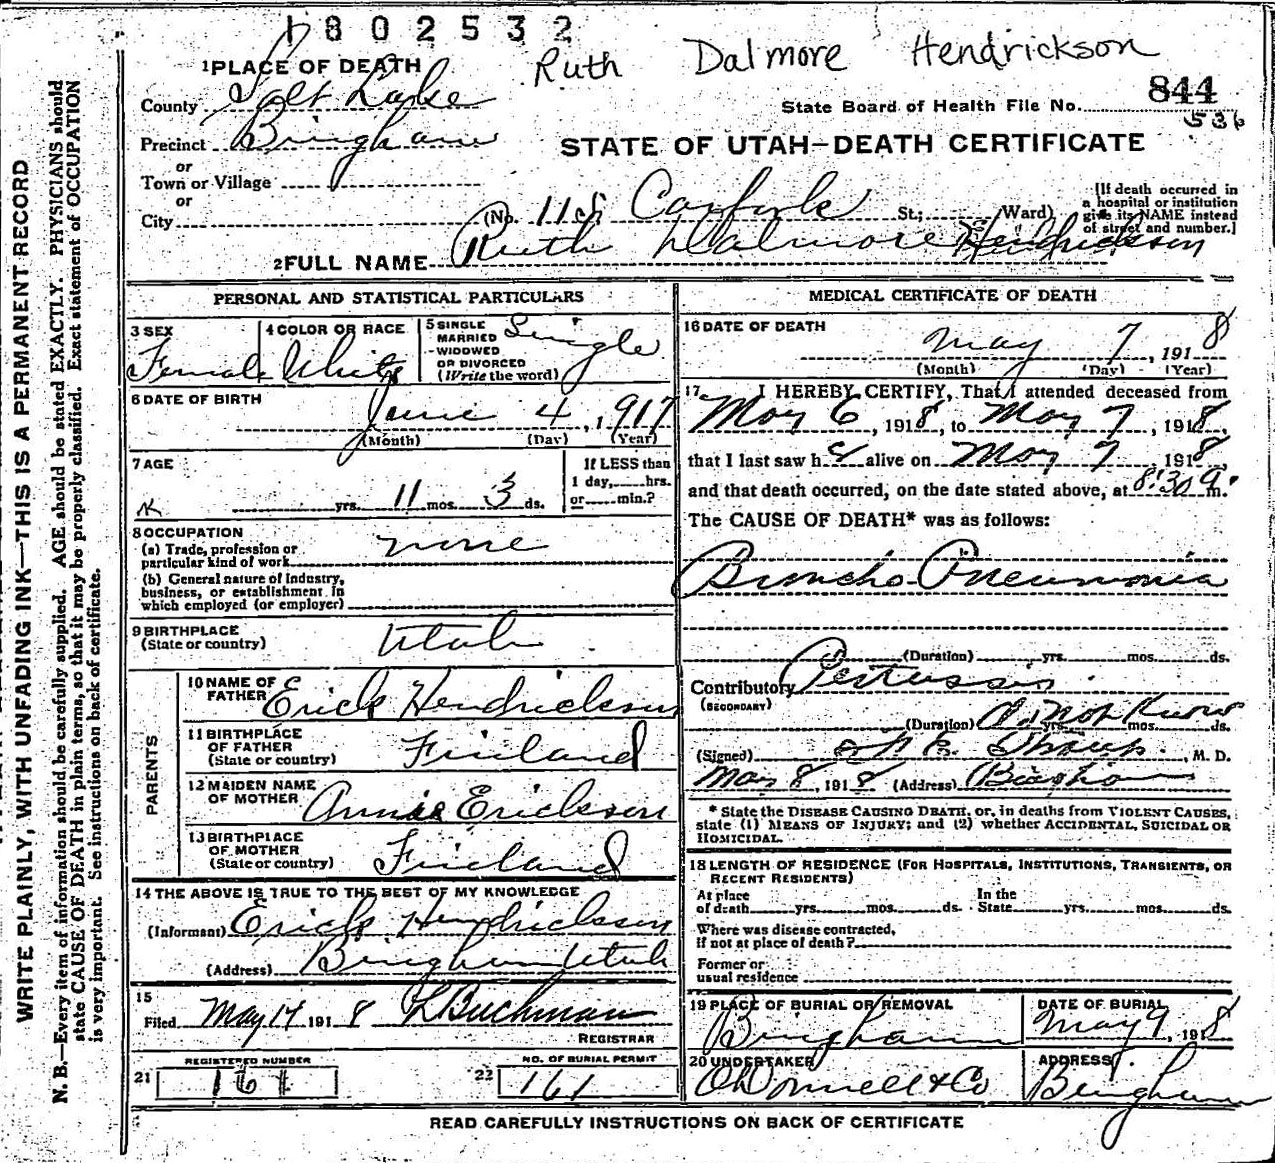 1802532
Ruth Dalmore Hendrickson
1 PLACE OF DEATH
County Salt Lake
State Board of Health File No. 844
536
Precinct Bingham
STATE OF UTAH—DEATH CERTIFICATE
or
Town or Village
or
City
(No. 11 Carfork St.; Ward)
[If death occurred in a hospital or institution give its NAME instead of street and number.]
2 FULL NAME Ruth Dalmore Hendrickson
PERSONAL AND STATISTICAL PARTICULARS
3 SEX Female
4 COLOR OR RACE White
5 SINGLE MARRIED WIDOWED OR DIVORCED (Write the word) Single
6 DATE OF BIRTH June 4, 1917
(Month) (Day) (Year)
7 AGE
yrs. 11 mos. 3 ds.
If LESS than 1 day, hrs. or min.?
8 OCCUPATION
(a) Trade, profession or particular kind of work none
(b) General nature of industry, business, or establishment in which employed (or employer)
9 BIRTHPLACE (State or country) Utah
PARENTS
10 NAME OF FATHER Erick Hendrickson
11 BIRTHPLACE OF FATHER (State or country) Finland
12 MAIDEN NAME OF MOTHER Annie Erickson
13 BIRTHPLACE OF MOTHER (State or country) Finland
14 THE ABOVE IS TRUE TO THE BEST OF MY KNOWLEDGE
(Informant) Erick Hendrickson
(Address) Bingham Utah
15
Filed May 14 1918 L Buchman
REGISTRAR
REGISTERED NUMBER
21 161
NO. OF BURIAL PERMIT
22 161
MEDICAL CERTIFICATE OF DEATH
16 DATE OF DEATH
May 7, 1918
(Month) (Day) (Year)
17 I HEREBY CERTIFY, That I attended deceased from
May 6, 1918, to May 7, 1918,
that I last saw h alive on May 7 1918
and that death occurred, on the date stated above, at 8:30 m.
The CAUSE OF DEATH* was as follows:
Broncho Pneumonia
(Duration) yrs. mos. ds.
Contributory Pertussis
(SECONDARY)
(Duration) Do Not Know yrs. mos. ds.
(Signed) Straup, M. D.
May 8, 1918 (Address) Bingham
* State the DISEASE CAUSING DEATH, or, in deaths from VIOLENT CAUSES, state (1) MEANS OF INJURY; and (2) whether ACCIDENTAL, SUICIDAL OR HOMICIDAL.
18 LENGTH OF RESIDENCE (FOR HOSPITALS, INSTITUTIONS, TRANSIENTS, OR RECENT RESIDENTS)
At place of death yrs. mos. ds. In the State yrs. mos. ds.
Where was disease contracted, if not at place of death?
Former or usual residence
19 PLACE OF BURIAL OR REMOVAL Bingham
DATE OF BURIAL May 9, 1918
20 UNDERTAKER O'Donnell & Co
ADDRESS Bingham
READ CAREFULLY INSTRUCTIONS ON BACK OF CERTIFICATE
WRITE PLAINLY, WITH UNFADING INK—THIS IS A PERMANENT RECORD
N. B.—Every item of information should be carefully supplied. AGE should be stated EXACTLY. PHYSICIANS should
state CAUSE OF DEATH in plain terms, so that it may be properly classified. Exact statement of OCCUPATION
is very important. See instructions on back of certificate.